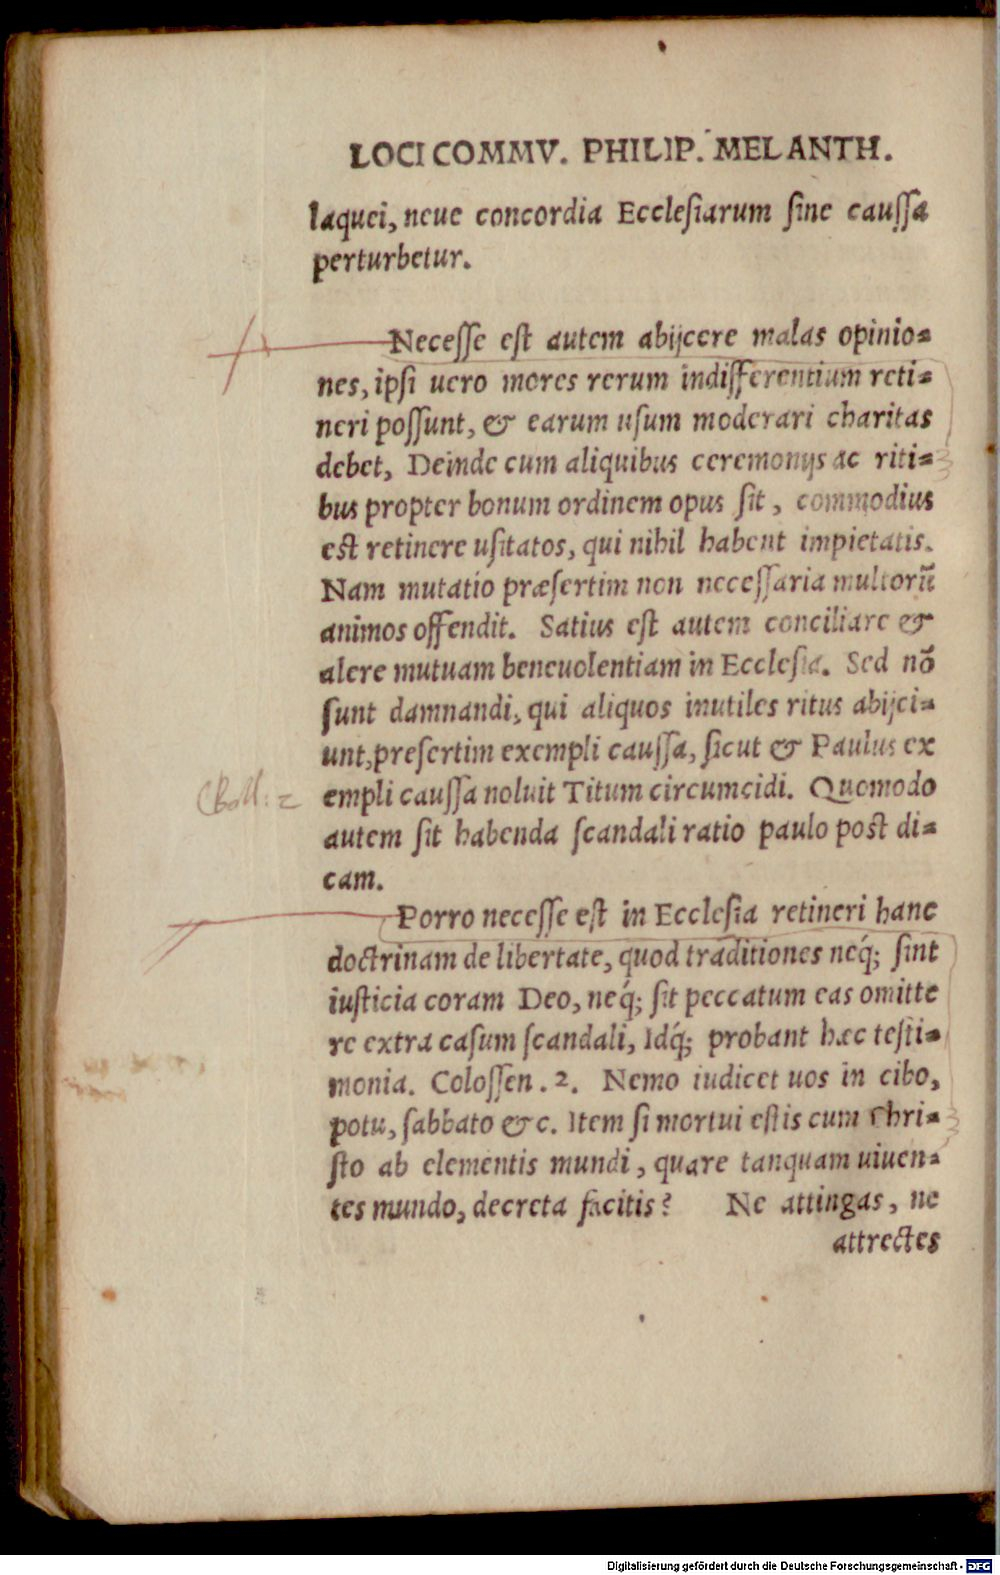 LOCI COMMV. PHILIP. MELANTH.
laquei, neue concordia Ecclesiarum sine caussa
perturbetur.
Necesse est autem abijcere malas opinio=
nes, ipsi uero mores rerum indifferentium reti=
neri possunt, & earum usum moderari charitas
debet, Deinde cum aliquibus ceremonijs ac riti=
bus propter bonum ordinem opus sit, commodius
est retinere usitatos, qui nihil habent impietatis.
Nam mutatio præsertim non necessaria multorū
animos offendit. Satius est autem conciliare &
alere mutuam beneuolentiam in Ecclesia. Sed nō
sunt damnandi, qui aliquos inutiles ritus abijci=
unt, presertim exempli caussa, sicut & Paulus ex
empli caussa noluit Titum circumcidi. Quomodo
autem sit habenda scandali ratio paulo post di=
cam.
Porro necesse est in Ecclesia retineri hanc
doctrinam de libertate, quod traditiones neq́; sint
iusticia coram Deo, neq́; sit peccatum eas omitte
re extra casum scandali, Idq́; probant hæc testi=
monia. Colossen. 2. Nemo iudicet uos in cibo,
potu, sabbato &c. Item si mortui estis cum Chri=
sto ab elementis mundi, quare tanquam uiuen=
tes mundo, decreta facitis? Ne attingas, ne
attrectes
Digitalisierung gefördert durch die Deutsche Forschungsgemeinschaft - DFG